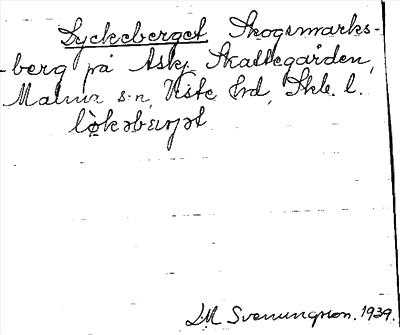 Lyckeberget Skogsmarks-
-berg på Ask, Skattegården,
Malma s:n, Viste hd, Skb. l.
l
LM Svenungsson. 1939.